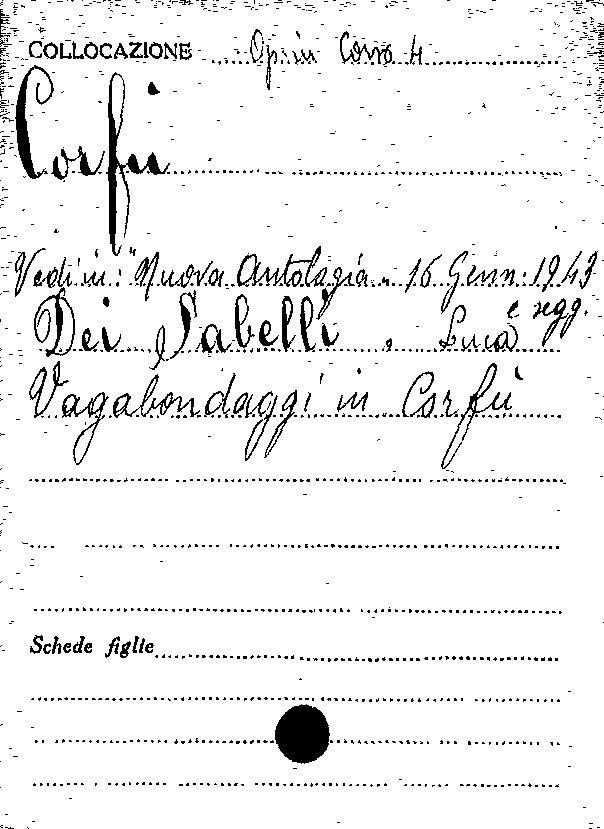 COLLOCAZIONE Op. in Corso 4
Corfù
Vedi in: "Nuova Antologia" 16 Genn. 1943
e segg.
Dei Sabelli, Luca
Vagabondaggi in Corfù
Schede figlie